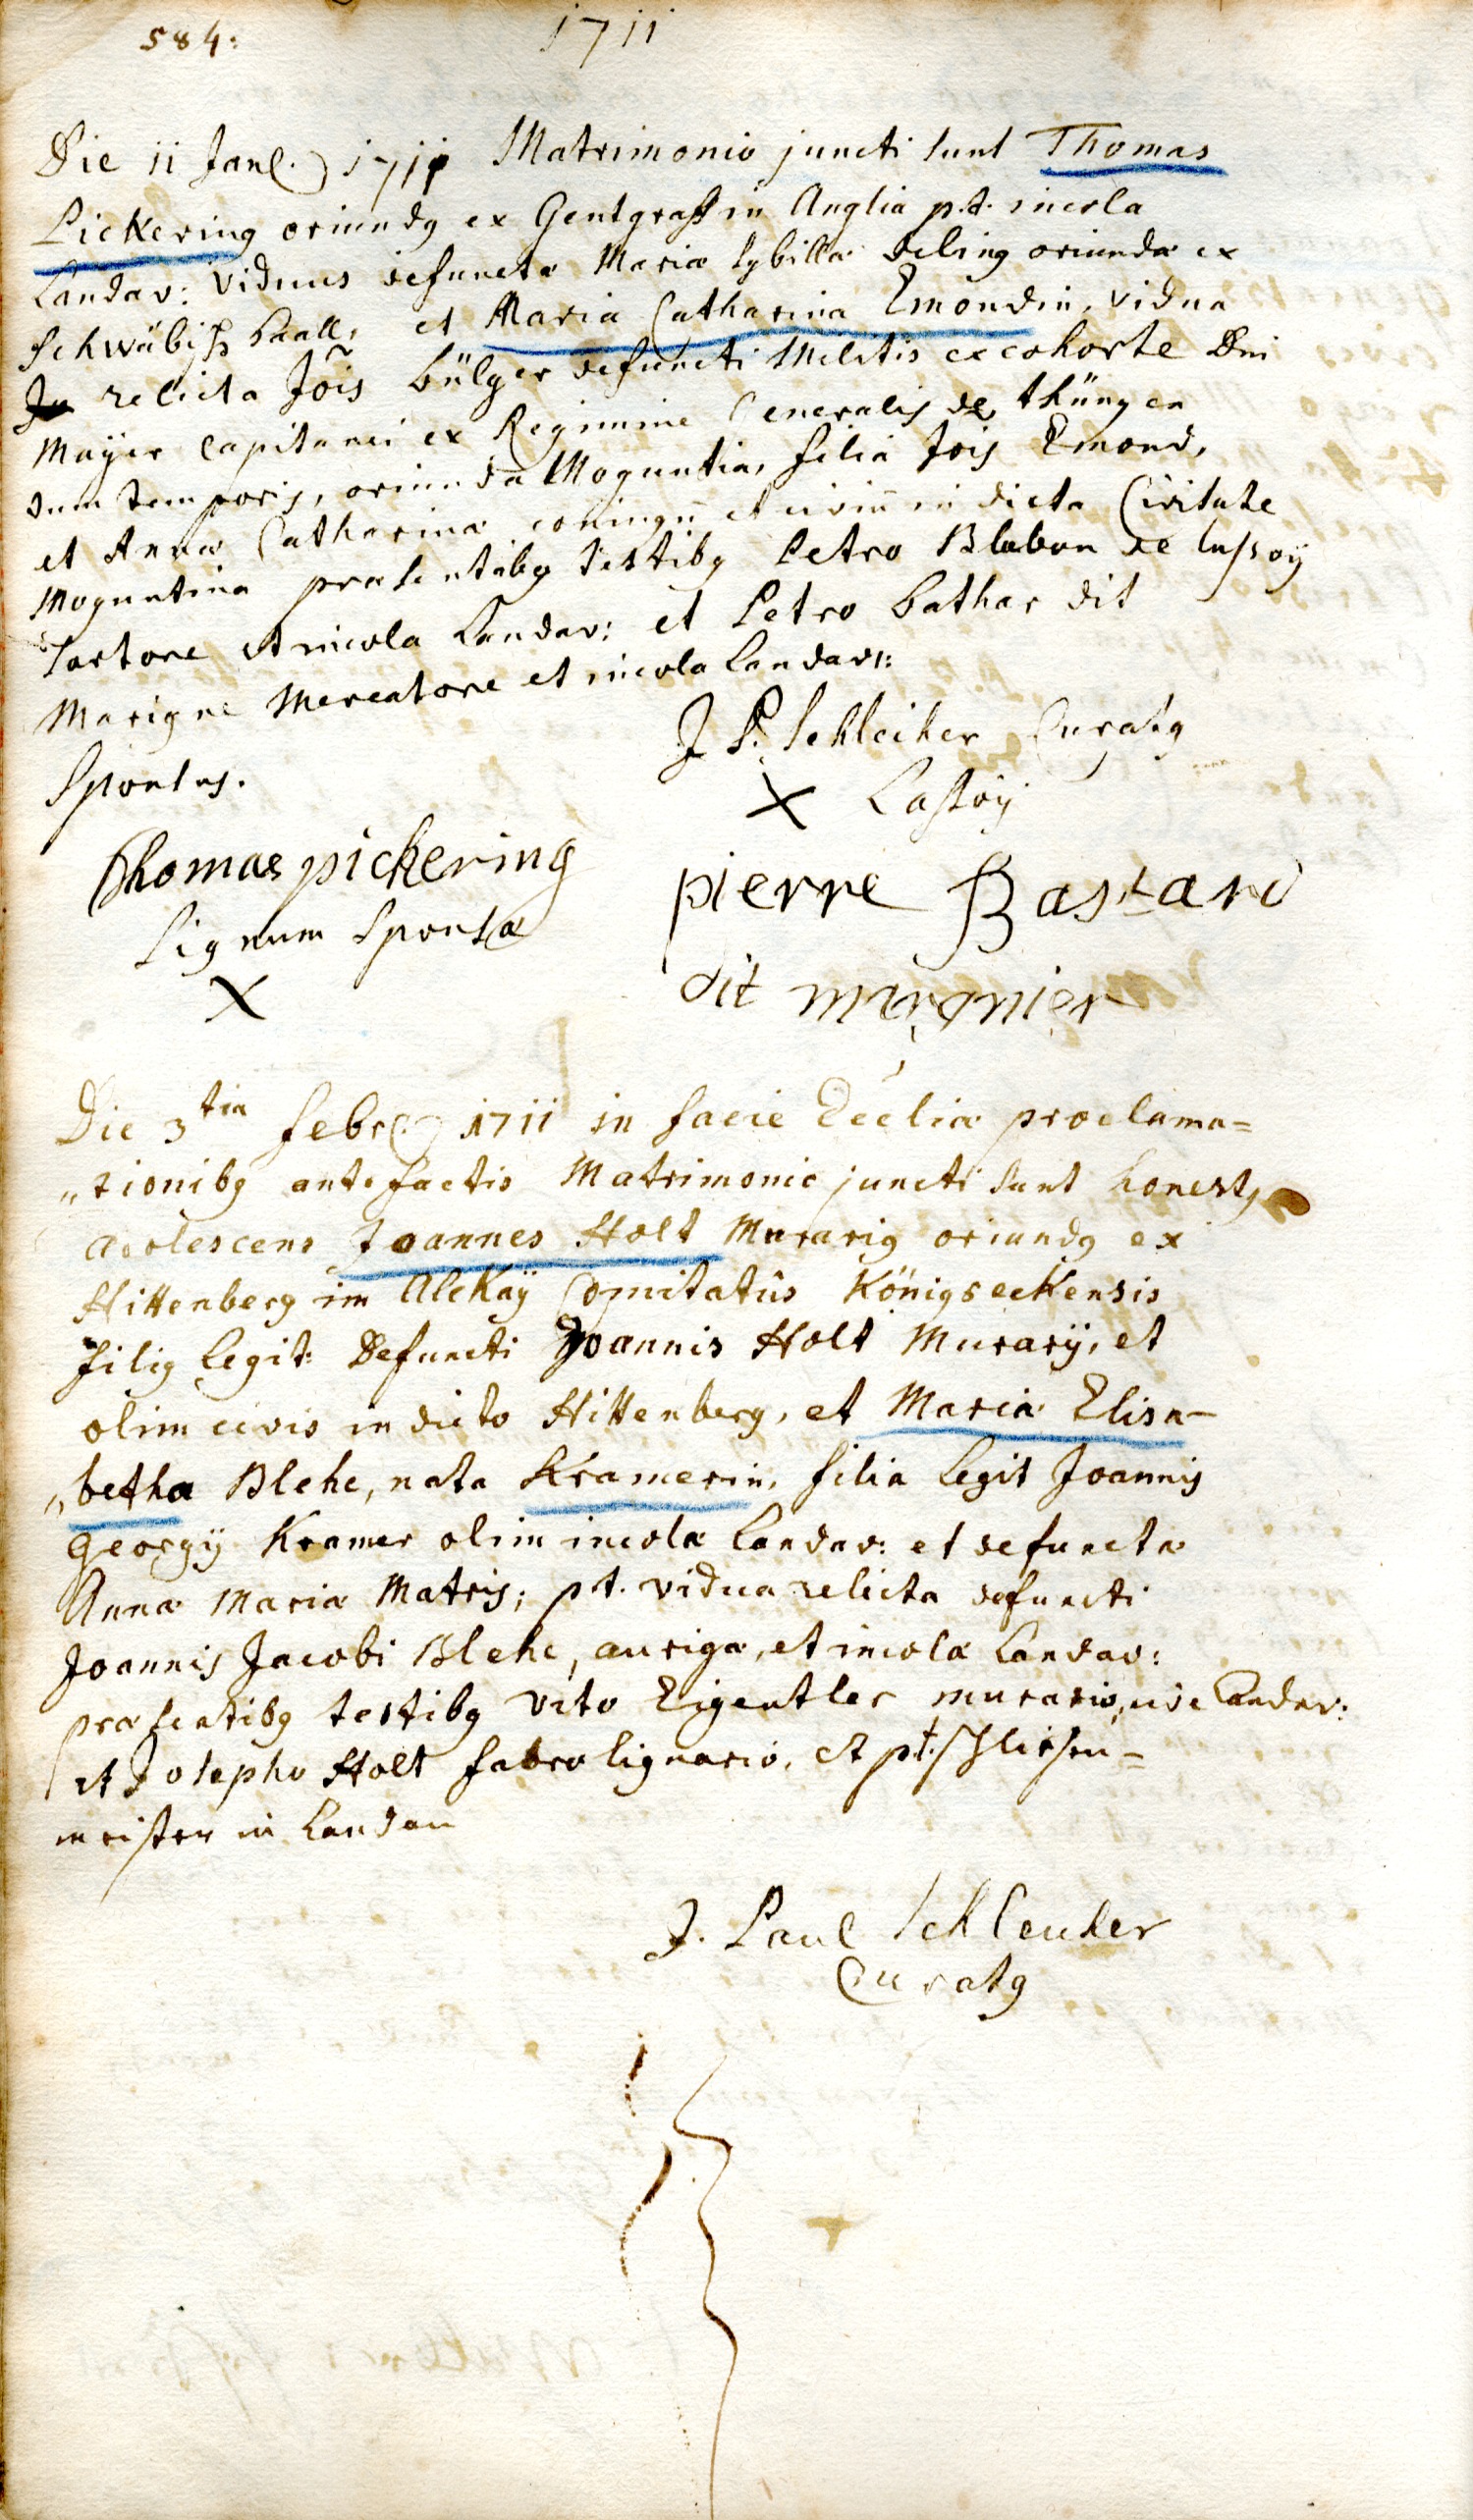 584:
1711
Die 11 Janl. 1711 Matrimonio juncti sunt Thomas
Pickering oriundg ex Gentgraff in Anglia p.t. incola
Landav: Viduus defunctæ Mariæ Sybillæ Seling oriundæ ex
Schwäbisch Haall, et Maria Catharina Emondin, vidua
relicta Jõis Bülger defuncti Militis ex cohorte Dni
Mayer Capitanei ex Regimine Generalis de Thüngen
dum temporis, oriunda Moguntia, filia Jois Emond,
et Annæ Catharinæ coniugū et civiū in dicta Civitate
Moguntina præsentibg testibg Petro Blabon de
Sartore et incola Landav: et Petro Bathar dit
Marigne Mercatore et incola Landav:
J P. Schleiher Curatg
Sponsus.
X Lastoÿ
Thomas pickering
pierre Bastard
Signum Sponsæ
X
dit margnier
Die 3tia Febr. 1711 in facie Eccliæ proclama=
„tionibg ante factis Matrimonio juncti sunt honestg
adolescens Joannes Holt Murarig oriundg ex
Hittenberg im Alckaÿ Comitatûs Königseckensis
filig legit: Defuncti Joannis Holt Murarÿ, et
olim civis in dicto Hittenberg, et Maria Elisa-
„betha Blehe, nata Kramerin, filia legit Joannis
Georgÿ Kramer olim incolæ Landav: et defunctæ
Annæ Mariæ Matris; p.t. vidua relicta defuncti
Joannis Jacobi Blehe, aurigæ, et incolæ Landav:
præsentibg testibg Vito Eigentler murario, cive Landav:
et Josepho Holt fabro lignario, et p.t. schleissen=
meister in Landau
J. Paul Schleuher
Curatg